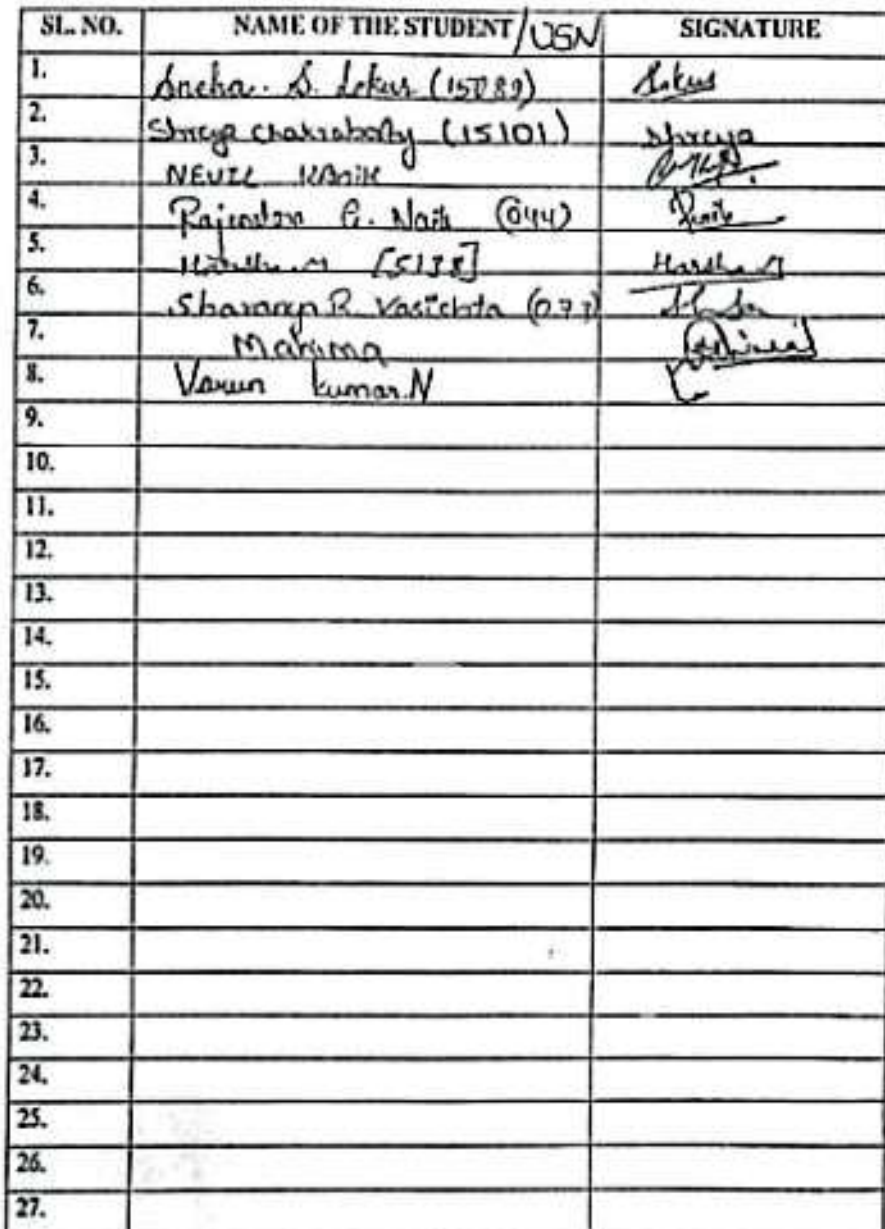 SL. NO. NAME OF THE STUDENT /USN SIGNATURE
1. Sneha. S. Lokur (15089)
2. Shreya Chakraborty (15101) Shreya
3. NEVIL
4. Rajendra G. Naik (044)
5. [5138] Harsha M
6. R. Vasichta
7. Mahima
8. Varun kumar.N
9.
10.
11.
12.
13.
14.
15.
16.
17.
18.
19.
20.
21.
22.
23.
24.
25.
26.
27.